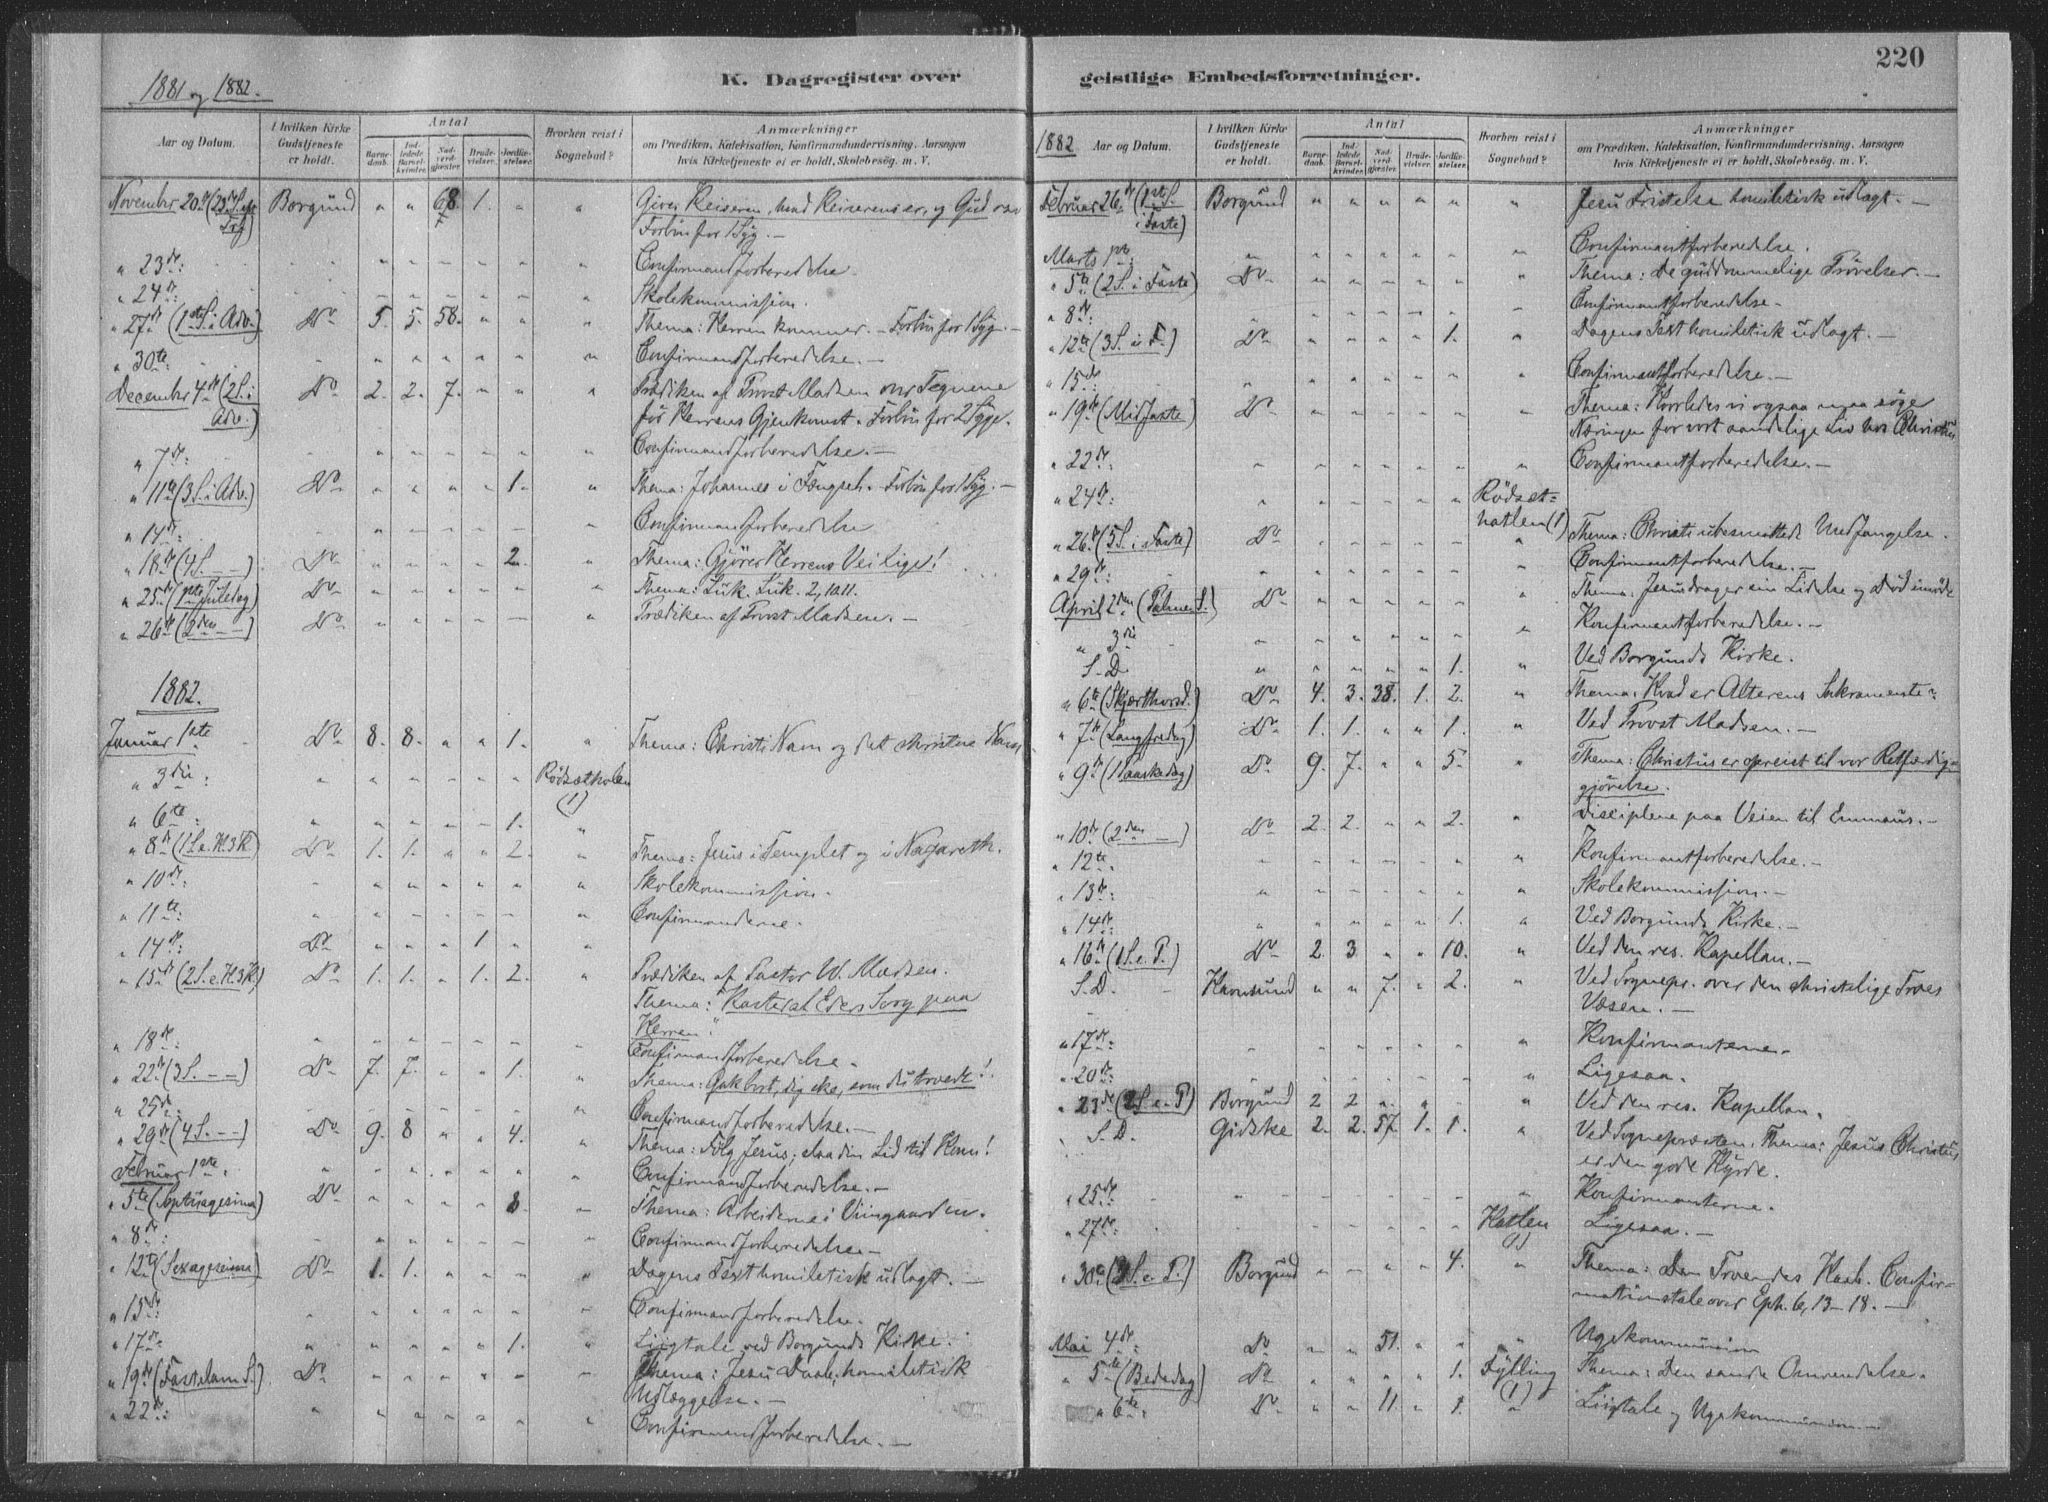 220
1881 og 1882.
K. Dagregister over
Aar og Datum. I hvilken Kirke Gudstjeneste er holdt. Antal Barnedaab. Indledede Barselkvinder. Nadverdgjæster. Brudevielser. Jordfæstelser. Hvorhen reist i Sognebud? Anmærkninger om Prædiken, Katekisation, Konfirmandundervisning, Aarsagen hvis Kirketjeneste ei er holdt, Skolebesøg. m. V.
Novembr 20de (23de S. e. Borgund " " 68 1. " " Giver Keiseren, hvad Keiserens er, og Gud
Trf) Forbøn for 1 Syg. —
" 23de: Confirmandforberedelse.
" 24de: Skolekommission.
" 27de (1ste S. i Adv.) Do 5. 5. 58. " " " Thema: Herren kommer. — Forbøn for 1 Syg. —
" 30te Confirmandforberedelse. —
Decembr 4de (2 S. i Do 2. 2. 7. " " " Prædiken af Provst Madsen over Tegnene
Adv.) før Herrens Gjenkomst. Forbøn for 2 Syge.
" 7de: Confirmandforberedelse. —
" 11te (3 S. i Adv.) Do " " " " 1. " Thema: Johannes i Fængsel. — Forbøn for 1 Syg. —
" 14de: Confirmandforberedelse
" 18de (4 S. — —) Do " " " " 2. " Thema: Gjører Herrens Vei lige!
" 25de (1ste Juledag) Do " " " " " " Thema: Luk. Luk. 2, 10.11.
" 26de (2den — —) Do " " " " — " Prædiken af Provst Madsen. —
1882.
Januar 1ste Do 8. 8. " " 1. " Thema: Christi Navn og det christne Navn
" 3die: " " " " " " Rødsætholen
(1)
" 6te: " " " " — 1. "
" 8de (1 S. e. H. 3 K) Do 1. 1. " " 2. " Thema: Jesus i Templet og i Nazareth.
" 10de: Skolekommission.
" 11te: Confirmanderne.
" 14de: Do " " " 1 " "
" 15de (2 S. e. H. 3 K) Do 1. 1. " 1. 2. " Prædiken af Pastor W. Madsen.
Thema: "Kaster al Eders Sorg paa
Herren".
" 18de: Confirmandforberedelse.
" 22de (3 S. — —) Do 7. 7. " " 1. " Thema: Gak bort, dig ske, som du troede!
" 25de: Confirmandforberedelse. —
" 29de (4 S. — —) Do 9. 8 " " 4. " Thema: Følg Jesus; slaa din Lid til Ham!
Februar 1ste. Confirmandforberedelse. —
" 5te (Septuagesima) Do " " " " 8. — Thema: Arbeiderne i Viingaarden.
" 8de: Confirmandforberedelse —
" 12te (Sexagesima) Do 1. 1. " " " " Dagens Text homiletisk udlagt. —
" 15de: Confirmandforberedelse.
" 17de: " " " " " 1. " Liigtale ved Borgunds Kirke.
" 19de (Fastelavns S.) Do " " " " " " Thema: Jesu Daab; homiletisk
Udlæggelse. —
" 22de: Confirmandforberedelse. —
geistlige Embedsforretninger.
1882 Aar og Datum. I hvilken Kirke Gudstjeneste er holdt. Antal Barnedaab. Indledede Barselkvinder. Nadverdgjæster. Brudevielser. Jordfæstelser. Hvorhen reist i Sognebud? Anmærkninger om Prædiken, Katekisation, Konfirmandundervisning, Aarsagen hvis Kirketjeneste ei er holdt, Skolebesøg. m. V.
Februar 26de (1ste S. Borgund " " " " " " Jesu Fristelse homiletisk udlagt. —
i Faste)
Marts 1ste: Confirmantforberedelse.
" 5te (2 S. i Faste) Do " " " " " " Thema: De guddommelige Prøvelser. —
" 8de: Confirmantforberedelse —
" 12te (3 S. i F.) Do " " " " 1. " Dagens Text homiletisk udlagt. —
" 15de: Confirmantforberedelse. —
" 19de (Midfaste) Do " " " " " " Thema: Hvorledes vi ogsaa maa søge
Næringen for vort aandelige Liv hos Christus
" 22de: Confirmantforberedelse. —
" 24de: " " " " " " Rødset-
hatlen (1)
" 26de (5 S. i Faste) Do " " " " " " Thema: Christi ubesmittede Undfangelse.
" 29de: Confirmantforberedelse. —
April 2den (Palme S.) Do " " " " " " Thema: Jesus drager sin Lidelse og Død imøde
" 3die Konfirmantforberedelse. —
S. D. " " " " " 1. " Ved Borgunds Kirke.
" 6te (Skjærthorsd.) Do 4. 3. 38. 1. 2. " Thema: Hvad er Alterens Sakramente?
" 7de (Langfredag) Do 1. 1. " " 1. " Ved Provst Madsen. —
" 9de (1 Paaskedag) Do 9. 7. " " 5. " Thema: Christus er opreist til vor Retfærdig-
gjørelse.
" 10de (2den —) Do 2. 2. " " 2. " Disciplene paa Veien til Emmaus. —
" 12te: Konfirmantforberedelse. —
" 13de: Skolekommission. —
" 14de: " " " " " 1. " Ved Borgunds Kirke. —
" 16de (1 S. e. P.) Do 2. 3. " " 10. " Ved den res. Kapellan. —
S. D. Havnsund " " 7. " 2. " Ved Sognepr. over den christelige Troes
Væsen. —
" 17de: Konfirmanterne.
" 20de: Ligesaa.
" 23de (2 S. e. P) Borgund 2 2 " " " " Ved den res. Kapellan.
S. D. Gidske 2. 2. 57. 1. 1. " Ved Sognepræsten. Thema: Jesus Christus
er den gode Hyrde.
" 25de: Konfirmanterne.
" 27de: Hatlen Ligesaa. —
(1)
" 30te (3 S. e. P.) Borgund " " " " 4. " Thema: Den Troendes Haab. Confir-
mationstale over Eph. 6, 13—18. —
Mai 4de: Do " " 51. " " " Ugekommunion
" 5te (Bededag) Do " " " " 1. Fylling Thema: Den sande Omvendelse.
(1)
" 6te: Do " " 11. " 1. " Liigtale og Ugekommunion —